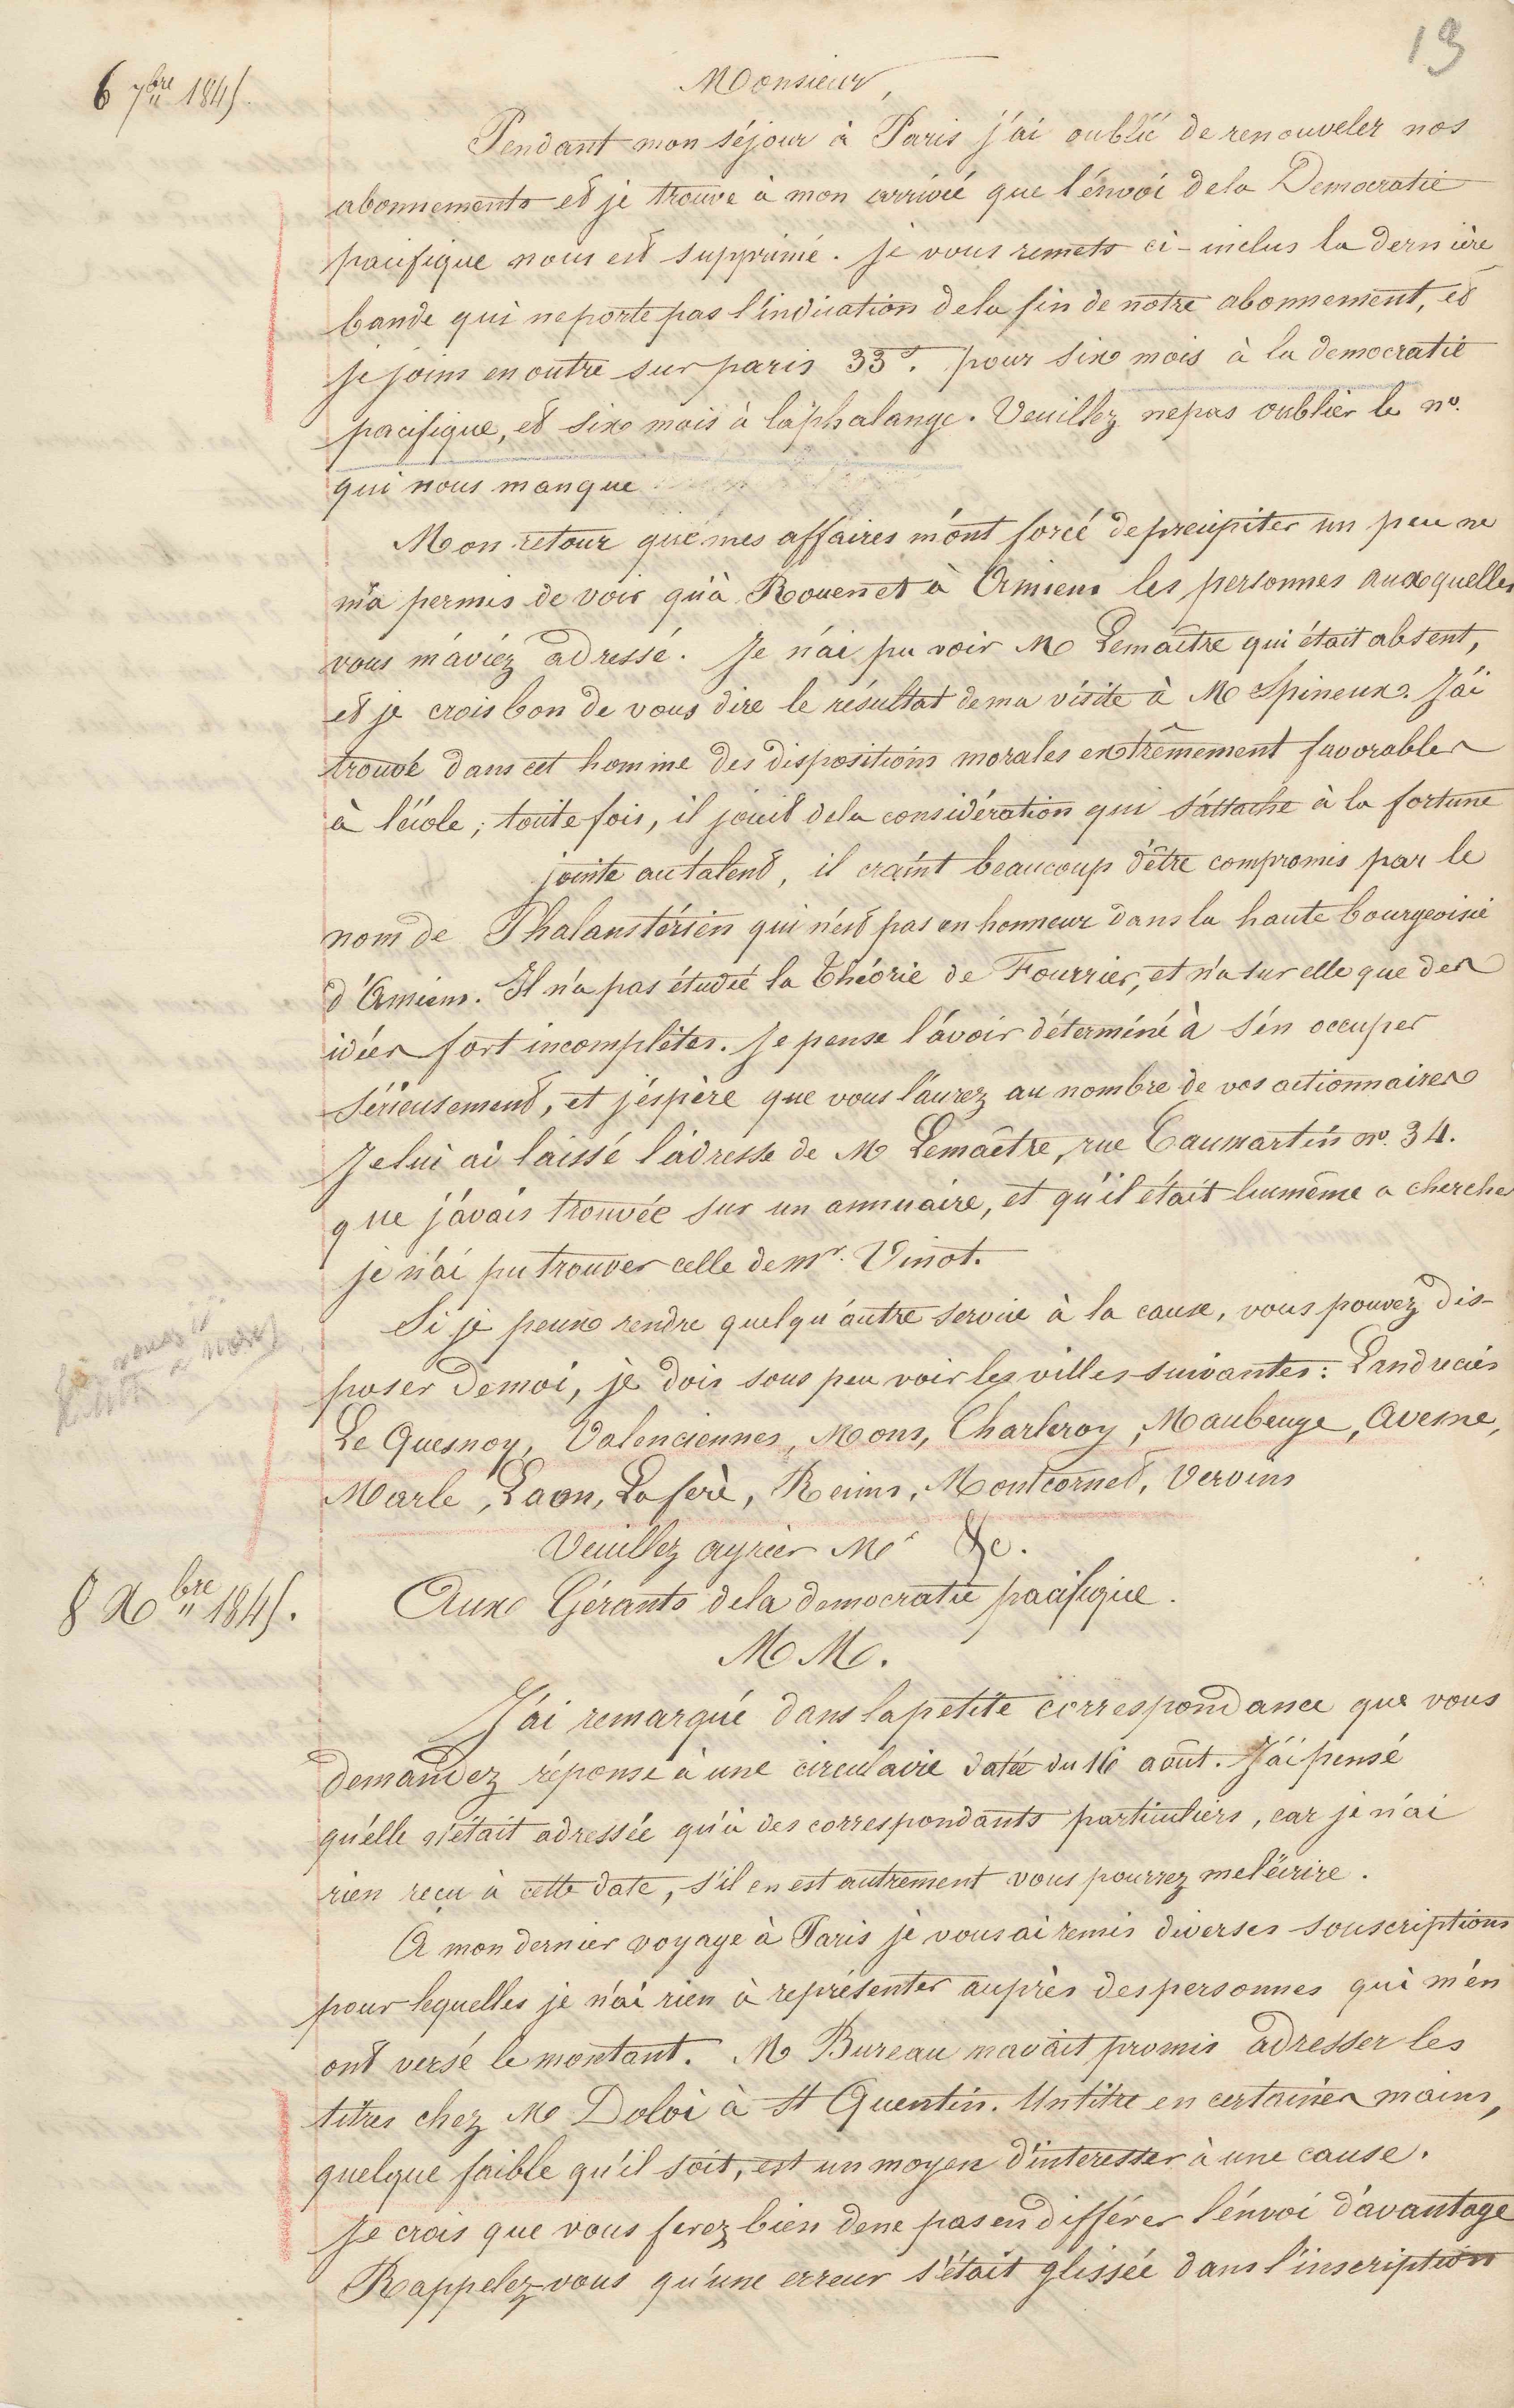 19
6 7bre 1845.
Monsieur,
Pendant mon séjour à Paris j'ai oublié de renouveler nos
abonnements et je trouve à mon arrivée que l'énvoi dela Democratie
pacifique nous est supprimé. je vous remets ci-inclus la dernière
bande qui neporte pas l'indication dela fin de notre abonnement, et
je joins en outre sur paris 33f. pour six mois à la democratie
pacifique, et six mois à la phalange. Veuillez nepas oublier le no.
qui nous manque
Mon retour que mes affaires m'ont forcé deprécipiter un peu ne
m'a permis de voir qu'à Rouen et à Amiens les personnes auxquelles
vous m'aviez adressé. Je n'ai pu voir M Lemaître qui était absent,
et je crois bon de vous dire le résultat dema visite à M Spineux. J'ai
trouvé dans cet homme des dispositions morales extrêmement favorables
à l'école; toute fois, il jouit dela considération qui s'attache à la fortune
jointe au talent, il craint beaucoup d'être compromis par le
nom de Phalanstérien qui n'est pas en honneur dans la haute bourgeoisie
d'Amiens. Il n'a pas étudié la théorie de Fourrier, et n'a sur elle que des
idées fort incomplètes. Je pense l'avoir déterminé à s'en occuper
sérieusement, et j'espère que vous l'aurez au nombre de vos actionnaires
Je lui ai laissé l'adresse de M Lemaître, rue Caumartin no. 34.
que j'avais trouvée sur un annuaire, et qu'il était lui même a chercher
je n'ai pu trouver celle de mr. Vinot.
Si je peux rendre quelqu'autre service à la cause, vous pouvez dis-
poser de moi, je dois sous peu voir les villes suivantes: Landrecies
Le Quesnoy, Valenciennes, Mons, Charleroy, Maubeuge, Avesne,
Marle, Laon, Lafère, Reims, Montcornet, Vervins
Veuillez agréer Mr &c.
8 Xbre 1845.
Aux Gérants dela democratie pacifique.
M M.
J'ai remarqué dans la petite correspondance que vous
demandez réponse à une circulaire datée du 16 août. J'ai pensé
qu'elle n'était adressée qu'à des correspondants particuliers, car je n'ai
rien reçu à cette date, s'il en est autrement vous pourrez me l'écrire.
A mon dernier voyage à Paris je vous ai remis diverses souscriptions
pour lequelles je n'ai rien à représenter auprès des personnes qui m'en
ont versé le montant. M Bureau mavait promis adresser les
titres chez M Doloi à St Quentin. Un titre en certaines mains,
quelque faible qu'il soit, est un moyen d'interesser à une cause.
Je crois que vous ferez bien dene pas en différer l'énvoi d'avantage
Rappelez-vous qu'une erreur s'était glissée dans l'inscription